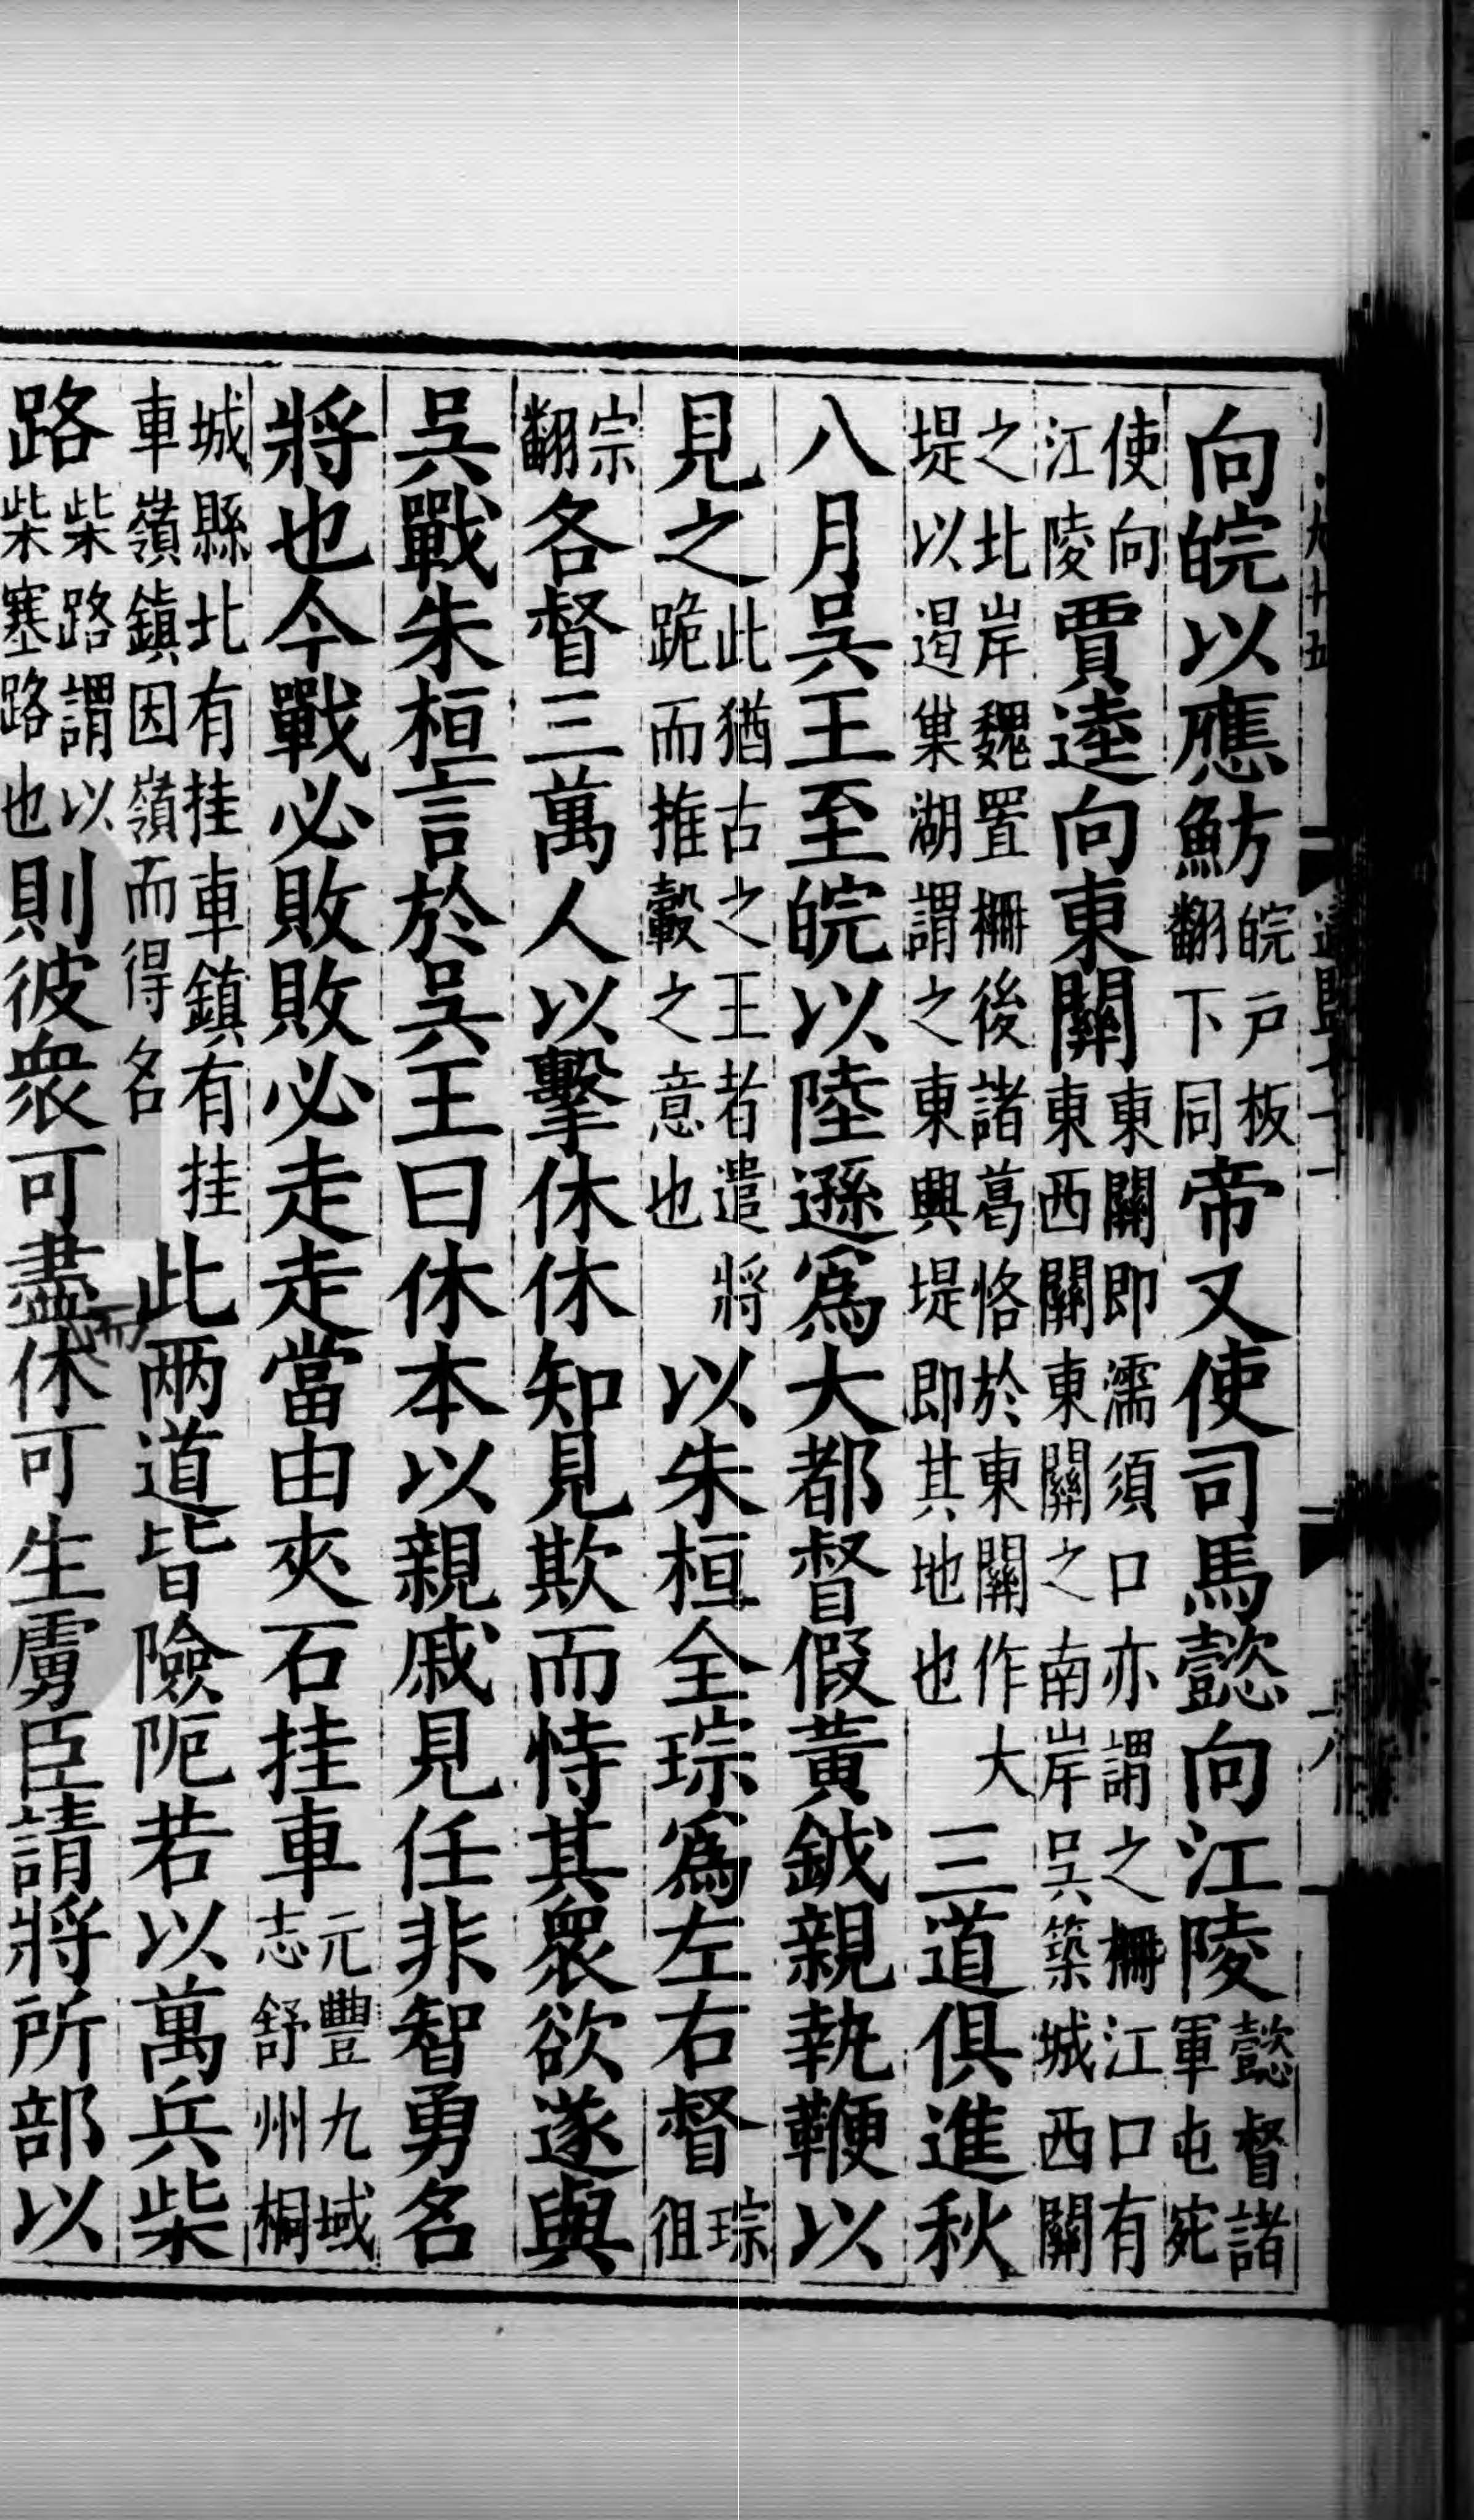 向皖以應魴皖戶板翻下同帝又使司馬懿向江陵懿督諸軍屯宛
使向江陵賈逵向東關東關即濡須口亦謂之柵江口有東西關東關之南岸吳築城西關
之北岸魏置柵後諸葛恪於東關作大堤以遏巢湖謂之東興堤即其地也三道俱進秋
八月吳王至皖以陸遜爲大都督假黃鉞親執鞭以
見之此猶古之王者遣將跪而推轂之意也以朱桓全琮爲左右督琮徂
宗翻各督三萬人以擊休休知見欺而恃其衆欲遂與
吳戰朱桓言於吳王曰休本以親戚見任非智勇名
將也今戰必敗敗必走走當由夾石挂車元豐九域志舒州桐
城縣北有挂車鎮有挂車嶺鎮因嶺而得名此兩道皆險阨若以萬兵柴
路柴路謂以柴塞路也則彼衆可盡休可生虜臣請將所部以